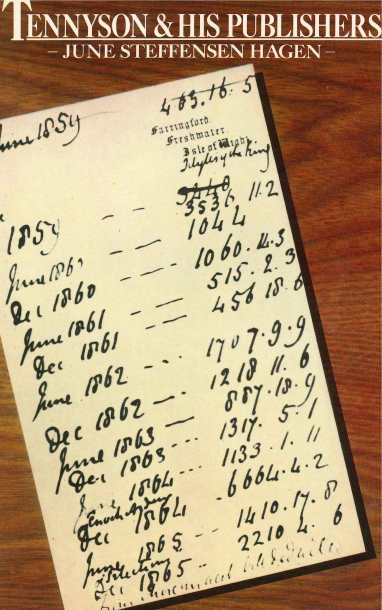 TENNYSON & HIS PUBLISHERS
– JUNE STEFFENSEN HAGEN –
463.16.5
June 1859
Farringford.
Freshwater.
Isle of Wight.
Idylls of the King
3536 11.2
1859 -- 1044
June 1860 -- 1060.14.3
Dec 1860 -- 515.2.3
June 1861 -- 456 18.6
Dec 1861
June 1862 --- 1707.9.9
Dec 1862 --- 1218 11.6
June 1863 --- 887.18.9
Dec 1863 --- 1317. 5.1
1864 --- 1133.1.11
Enoch Arden
Dec 1864 - 6664.4.2
June 1865 -- 1410.17.8
Selections
Dec 1865 -- 2210 4. 6